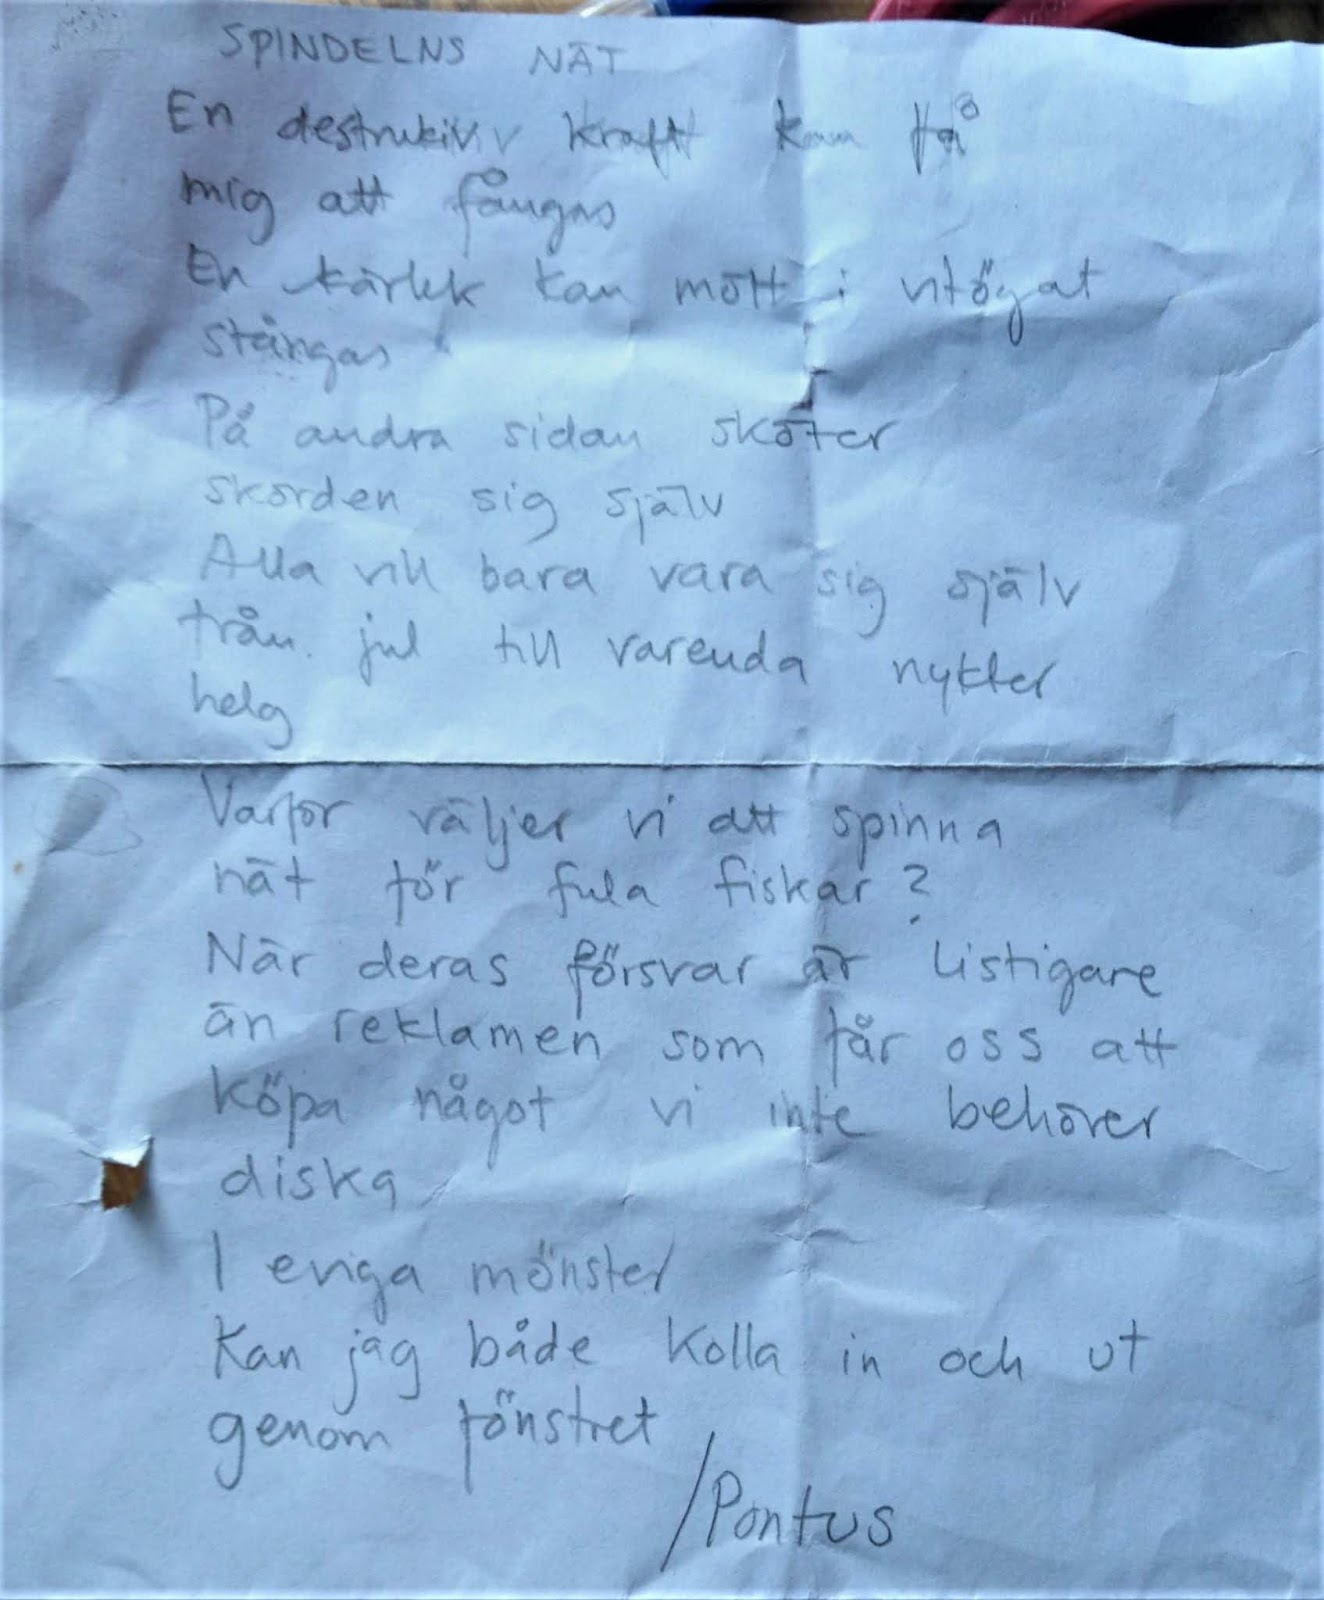 SPINDELNS NÄT
En destruktiv kraft kan få
mig att fångas
En kärlek kan mött i vitögat
stångas
På andra sidan sköter
skörden sig själv
Alla vill bara vara sig själv
från jul till varenda nykter
helg
Varför väljer vi att spinna
nät för fula fiskar?
När deras försvar är listigare
än reklamen som får oss att
köpa något vi inte behöver
diska
I eviga mönster
Kan jag både kolla in och ut
genom fönstret
/Pontus